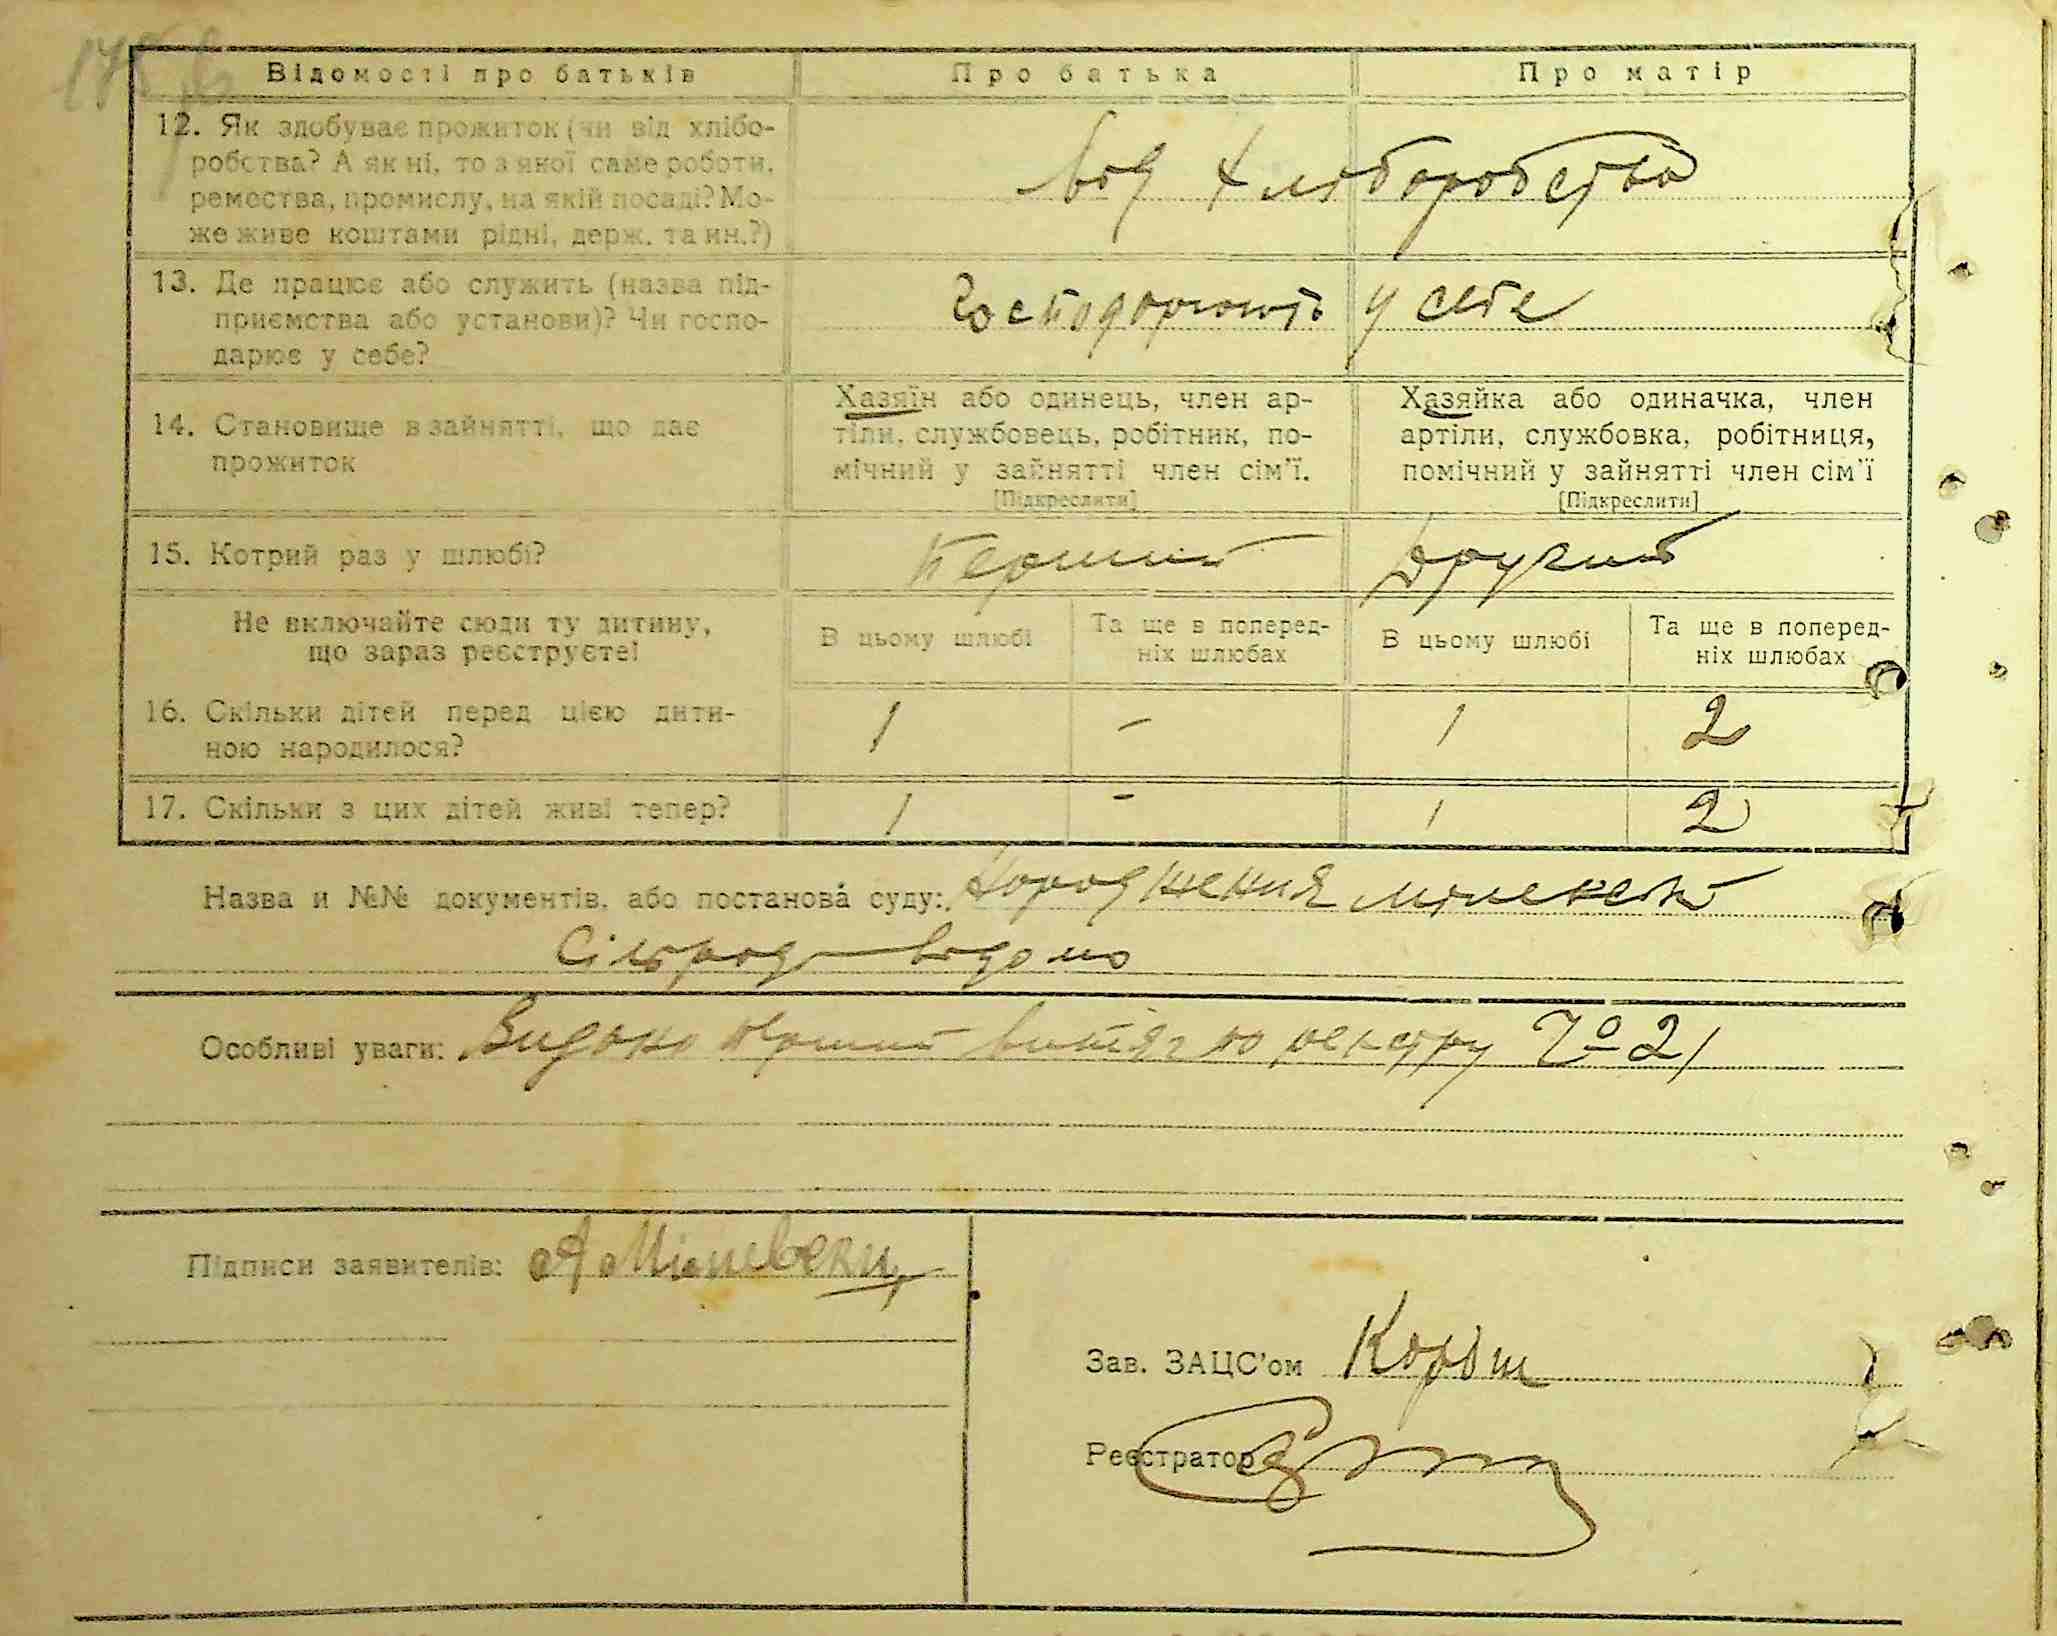 Відомості про батьків Про батька Про матір
12. Як здобуває прожиток (чи від хлібо-
робства? А як ні, то з якої саме роботи,
ремества, промислу, на якій посаді? Мо-
же живе коштами рідні, держ. та ин.?)
від хліборобства
13. Де працює або служить (назва під-
приємства або установи)? Чи госпо-
дарює у себе?
Господарюють у себе
14. Становище в зайнятті, що дає
прожиток
Хазяїн або одинець, член ар-
тіли, службовець, робітник, по-
мічний у зайнятті член сім'ї.
[Підкреслити]
Хазяйка або одиначка, член
артіли, службовка, робітниця,
помічний у зайнятті член сім'ї
[Підкреслити]
15. Котрий раз у шлюбі? Перший Другий
Не включайте сюди ту дитину,
що зараз реєструєте!
В цьому шлюбі
Та ще в поперед-
ніх шлюбах
В цьому шлюбі
Та ще в поперед-
ніх шлюбах
16. Скільки дітей перед цією дити-
ною народилося?
1 - 1 2
17. Скільки з цих дітей живі тепер? 1 - 1 2
Назва и №№ документів, або постанова суду:
Сільрад відомо
Особливі уваги: Видано перший витяг по реєстру № 21
Підписи заявителів:
Зав. ЗАЦС'ом Корош
Реєстратор